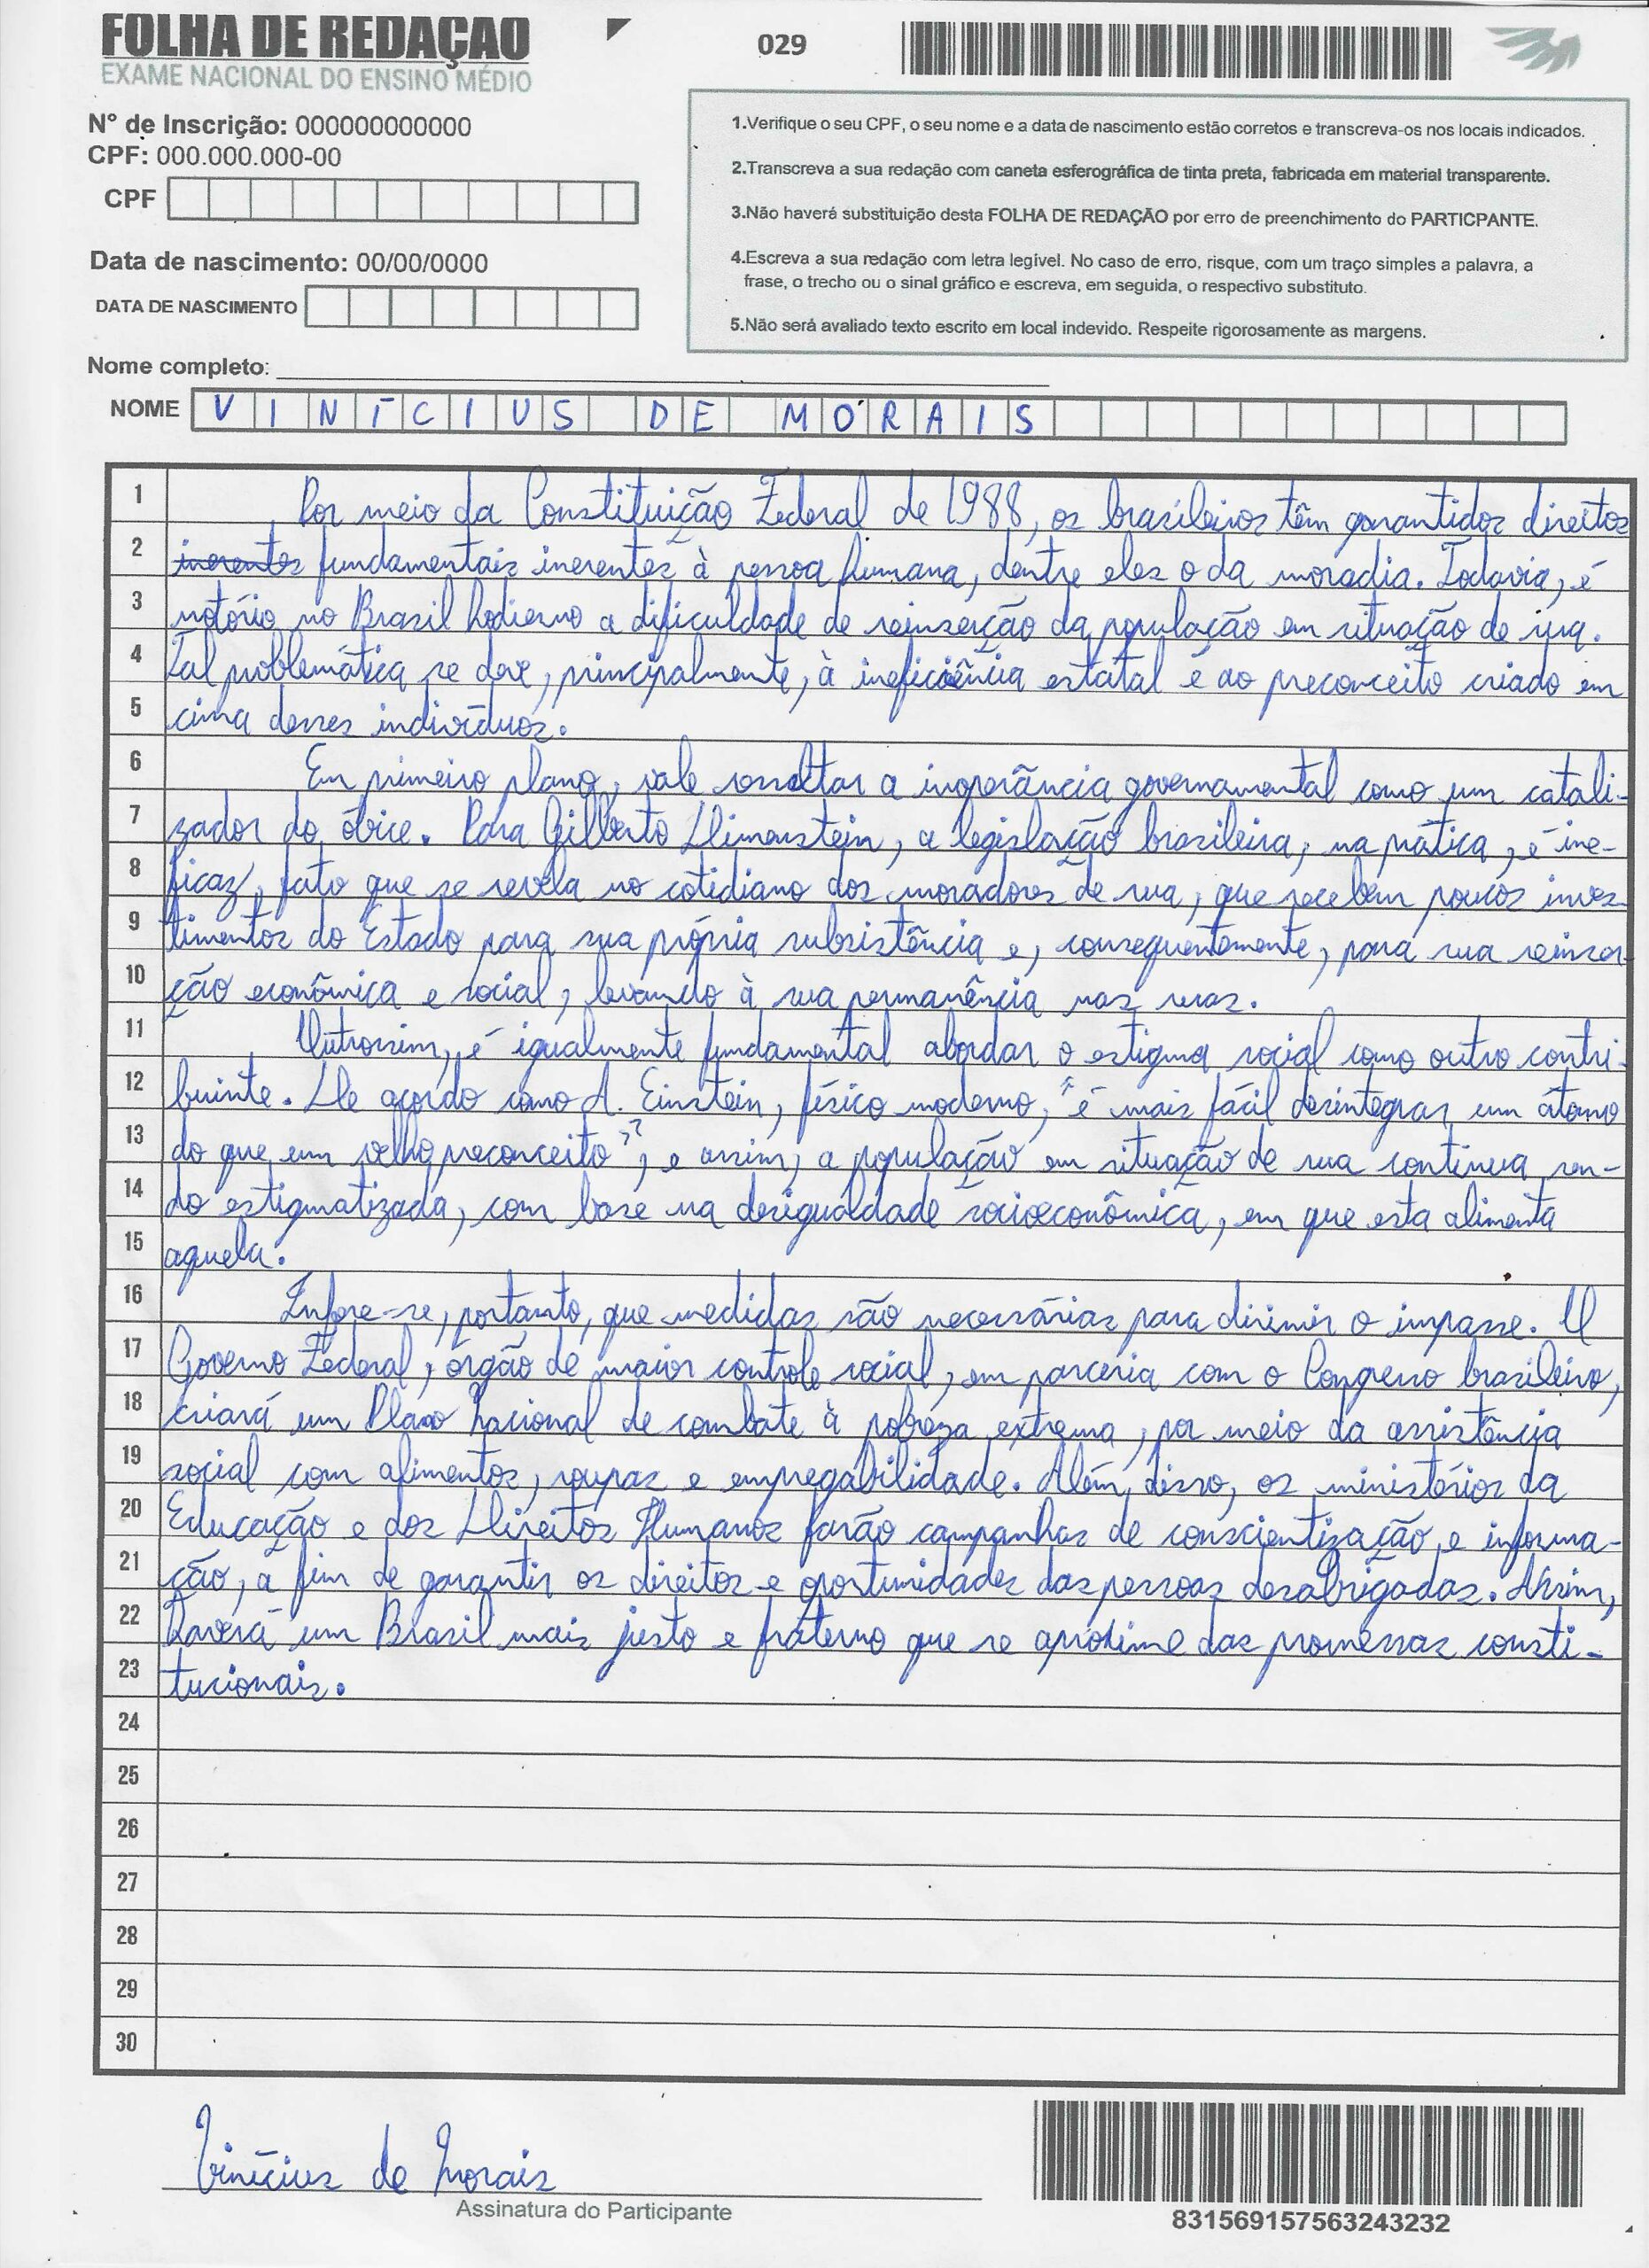 FOLHA DE REDAÇAO
EXAME NACIONAL DO ENSINO MÉDIO
029
Nº de Inscrição: 000000000000
CPF: 000.000.000-00
CPF
Data de nascimento: 00/00/0000
DATA DE NASCIMENTO
1.Verifique o seu CPF, o seu nome e a data de nascimento estão corretos e transcreva-os nos locais indicados.
2.Transcreva a sua redação com caneta esferográfica de tinta preta, fabricada em material transparente.
3.Não haverá substituição desta FOLHA DE REDAÇÃO por erro de preenchimento do PARTICPANTE.
4.Escreva a sua redação com letra legível. No caso de erro, risque, com um traço simples a palavra, a
frase, o trecho ou o sinal gráfico e escreva, em seguida, o respectivo substituto.
5.Não será avaliado texto escrito em local indevido. Respeite rigorosamente as margens.
Nome completo:
NOME VINÍCIUS DE MORAIS
1 Por meio da Constituição Federal de 1988, os brasileiros têm garantidos direitos
2 inerentes fundamentais inerentes à pessoa humana, dentre eles o da moradia. Todavia, é
3 notório no Brasil hodierno a dificuldade de reinserção da população em situação de rua.
4 Tal problemática se deve, principalmente, à ineficiência estatal e ao preconceito criado em
5 cima desses indivíduos.
6 Em primeiro plano, vale ressaltar a inoperância governamental como um catali-
7 zador do óbice. Para Gilberto Dimenstein, a legislação brasileira, na prática, é ine-
8 ficaz, fato que se revela no cotidiano dos moradores de rua, que recebem poucos inves-
9 timentos do Estado para sua própria subsistência e, consequentemente, para sua reinser-
10 ção econômica e social, levando à sua permanência nas ruas.
11 Outrossim, é igualmente fundamental abordar o estigma social como outro contri-
12 buinte. De acordo como A. Einstein, físico moderno, "é mais fácil desintegrar um átomo
13 do que um velho preconceito", e assim, a população em situação de rua continua sen-
14 do estigmatizada, com base na desigualdade socioeconômica, em que esta alimenta
15 aquela.
16 Infere-se, portanto, que medidas são necessárias para dirimir o impasse. O
17 Governo Federal, órgão de maior controle social, em parceria com o Congresso brasileiro,
18 criará um Plano Nacional de combate à pobreza extrema, por meio da assistência
19 social com alimentos, roupas e empregabilidade. Além disso, os ministérios da
20 Educação e dos Direitos Humanos farão campanhas de conscientização e informa-
21 ção, a fim de garantir os direitos e oportunidades das pessoas desabrigadas. Assim,
22 haverá um Brasil mais justo e fraterno que se aproxime das promessas consti-
23 tucionais.
24
25
26
27
28
29
30
Vinícius de Morais
Assinatura do Participante
831569157563243232